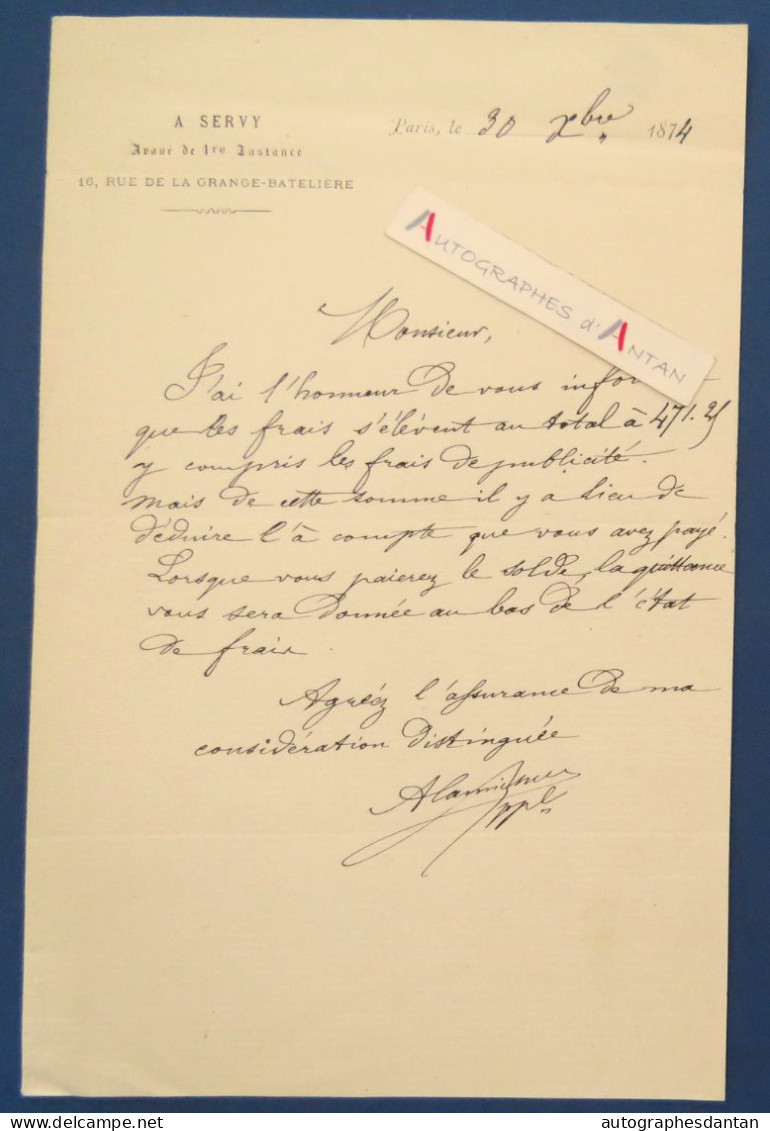 A SERVY
Avoué de 1re Instance
16, RUE DE LA GRANGE-BATELIÈRE
Paris, le 30 Xbre 1874
AUTOGRAPHES d'ANTAN
Monsieur,
J'ai l'honneur de vous infor
que les frais s'élèvent au total à 471.25
y compris les frais de publicité.
Mais de cette somme il y a lieu de
déduire l'à compte que vous avez payé.
Lorsque vous paierez le solde, la quittance
vous sera donnée au bas de l'état
de frais.
Agréez l'assurance de ma
considération distinguée
ppl
autographesdantan